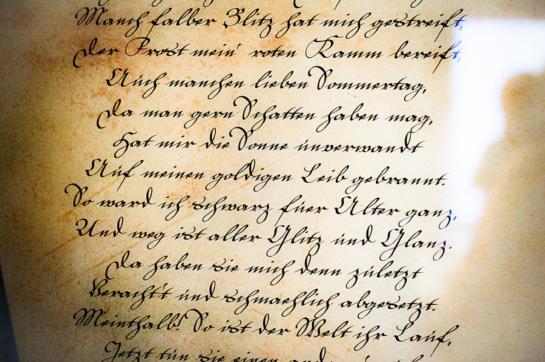 Manch falber Blitz hat mich gestreift,
Der Frost mein' roten Kamm bereift,
Auch manchen lieben Sommertag,
Da man gern Schatten haben mag,
Hat mir die Sonne unverwandt
Auf meinen goldigen Leib gebrannt.
So ward ich schwarz füer Alter ganz,
Und weg ist aller Glitz und Glanz.
Da haben sie mich denn zuletzt
Veracht't und schmaehlich abgesetzt.
Meinthalb! So ist der Welt ihr Lauf,
Jetzt tun sie einen